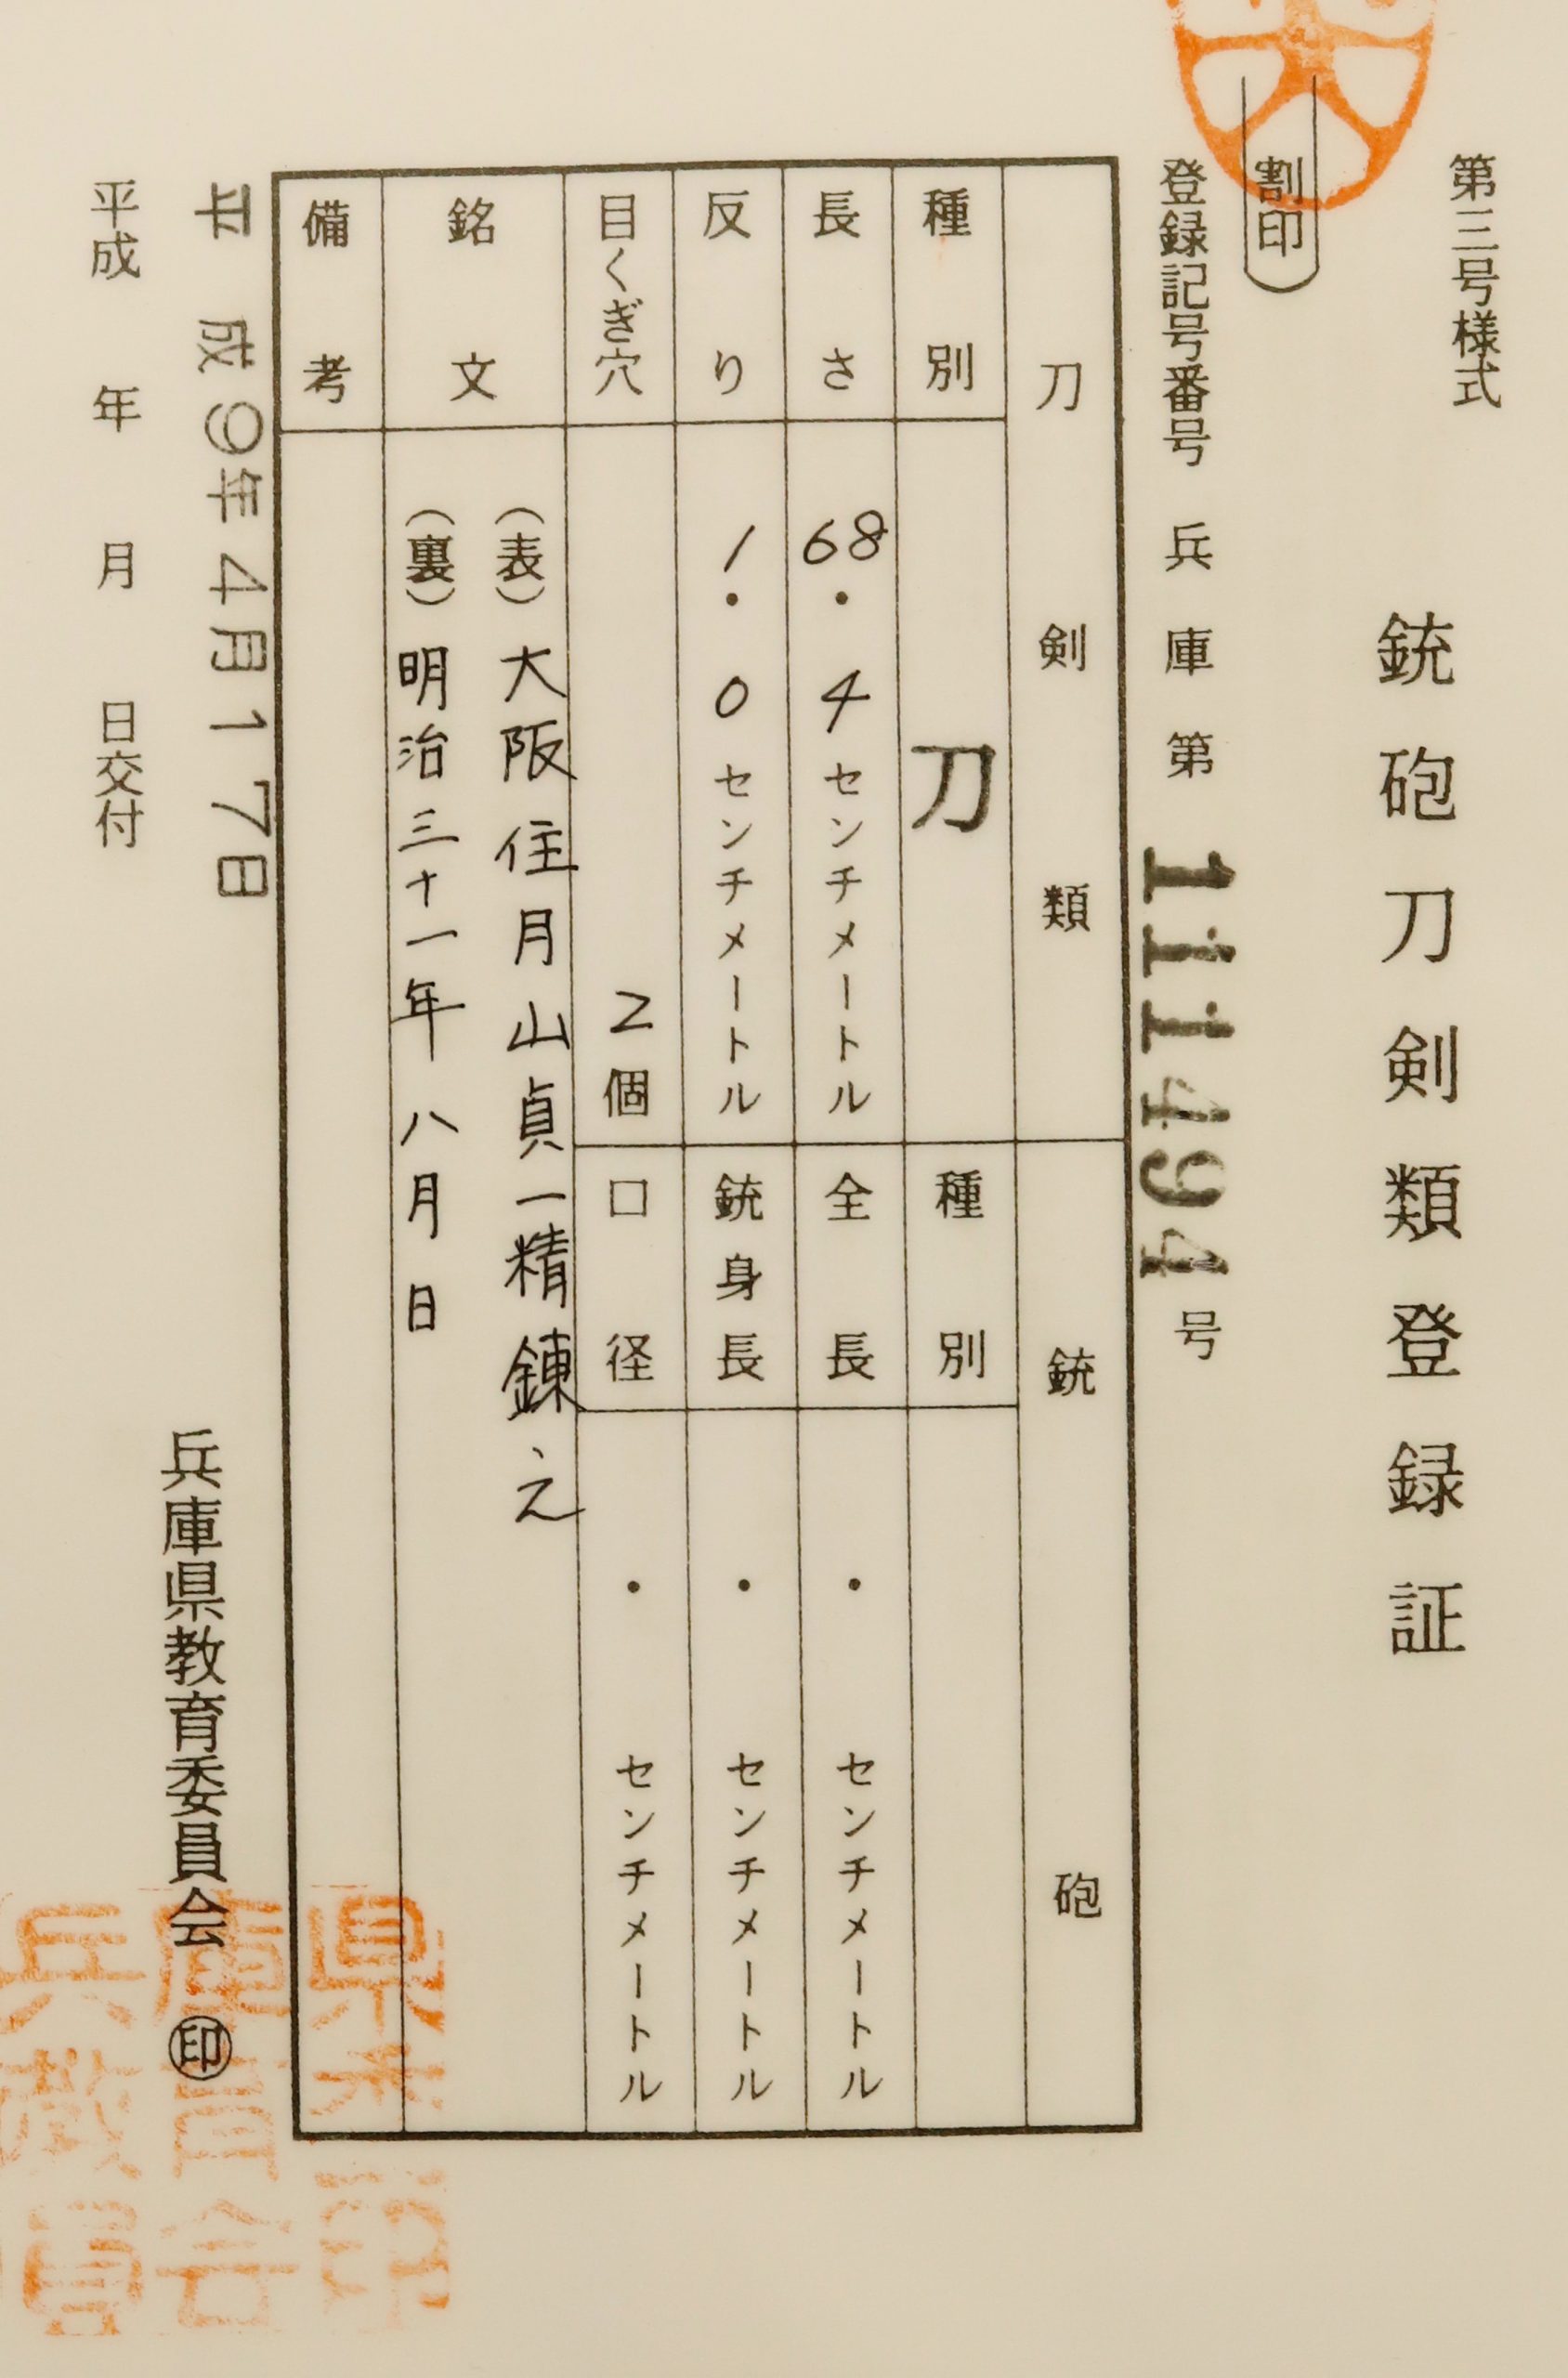 第三号様式
銃砲刀剣類登録証
(割印)
登録記号番号 兵庫第 111494 号
刀剣類 銃砲
種別 刀 種別
長さ 68.4センチメートル 全長 ・センチメートル
反り 1.0センチメートル 銃身長 ・センチメートル
目くぎ穴 2個 口径 ・センチメートル
銘文 (表)大阪住月山貞一精錬ヽ之
(裏)明治三十一年八月日
備考
平成9年4月17日
平成 年 月 日交付
兵庫県教育委員会 ㊞